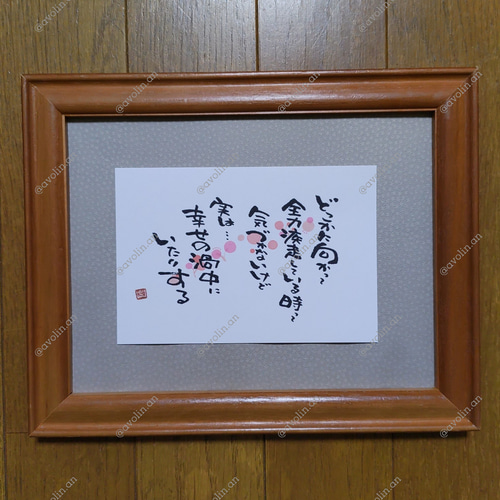 どこかに向かって
全力疾走している時って
気づかないけど
実は…
幸せの渦中に
いたりする
@avolin.an